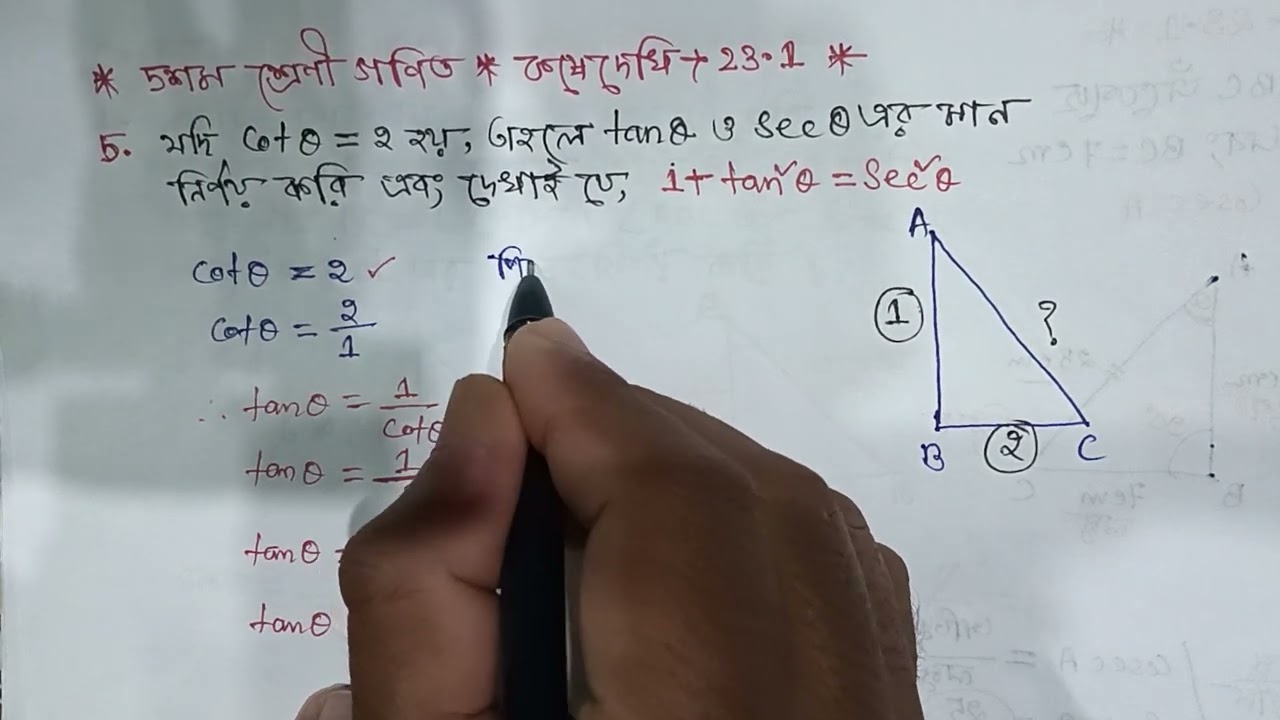 * দশম শ্রেনী গনিত * কষে দেখি → 23.1 *
5. যদি Cotθ = 2 হয়, তাহলে tanθ ও Secθ এর মান
নির্ণয় করি এবং দেখাই যে, 1 + tan²θ = Sec²θ
Cotθ = 2 ✓
পি
Cotθ = 2/1
∴ tanθ = 1/Cotθ
tanθ = 1
tanθ =
tanθ
A
1
?
B
2
C